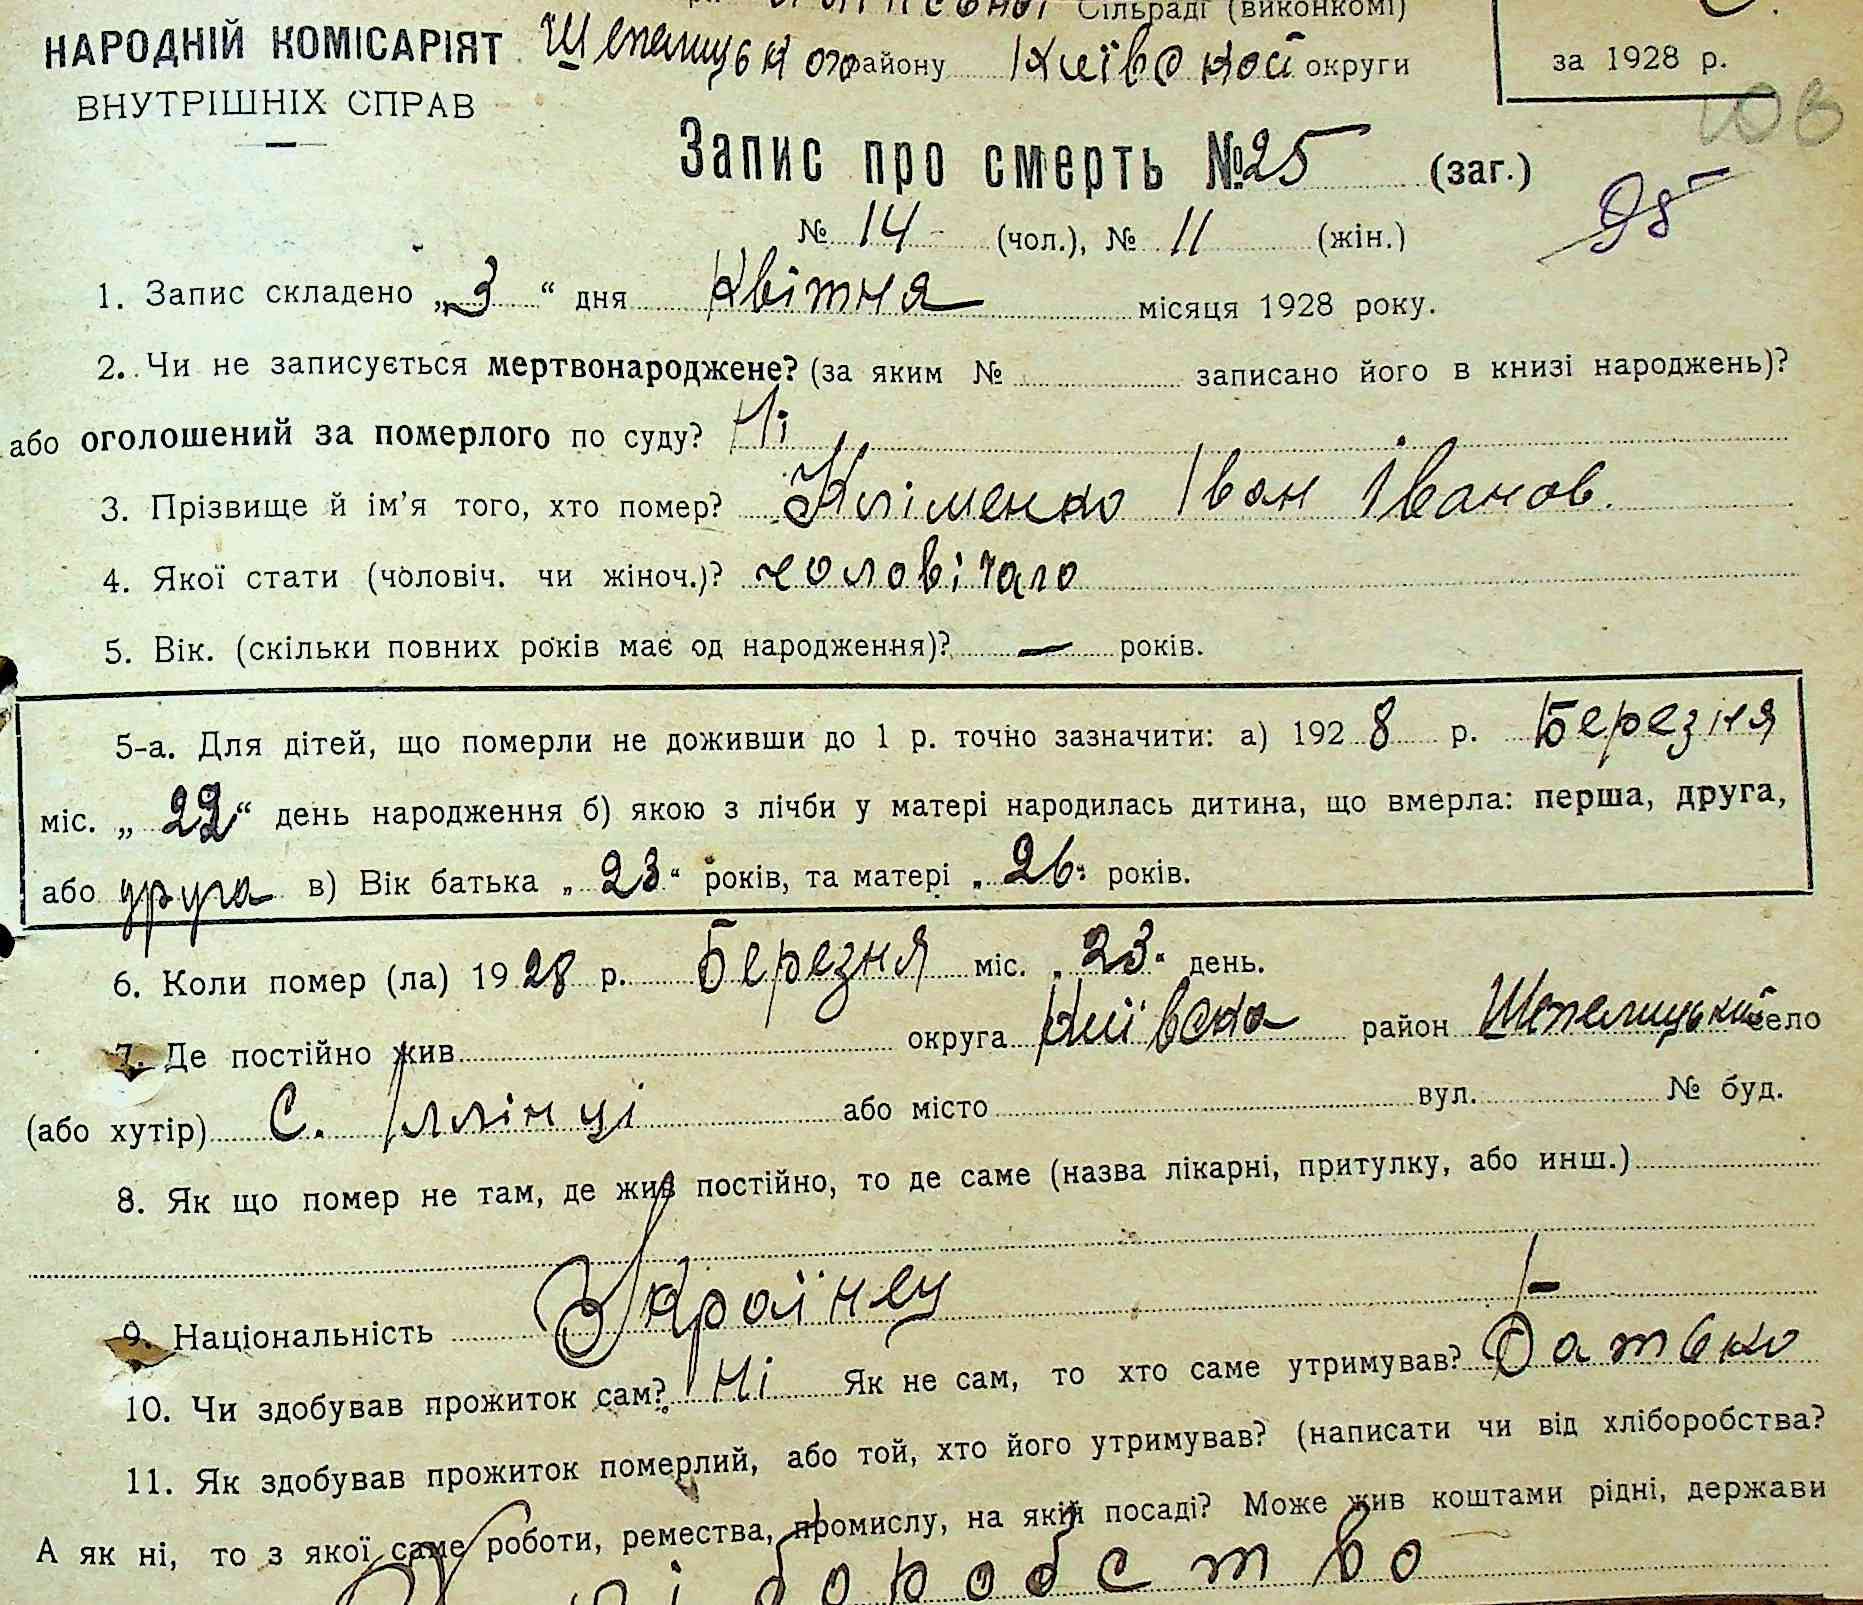 Сільраді (виконкомі)
НАРОДНІЙ КОМІСАРІЯТ
ВНУТРІШНІХ СПРАВ
Шепелицького району Київської округи
за 1928 р.
Запис про смерть № 25 (заг.)
№ 14 (чол.), № 11 (жін.)
1. Запис складено „3“ дня Квітня місяця 1928 року.
2. Чи не записується мертвонароджене? (за яким № записано його в книзі народжень)?
або оголошений за померлого по суду? Ні
3. Прізвище й ім'я того, хто помер? Кліменко Іван Іванов.
4. Якої стати (чоловіч. чи жіноч.)? чоловічаго
5. Вік. (скільки повних років має од народження)? — років.
5-а. Для дітей, що померли не доживши до 1 р. точно зазначити: а) 1928 р. Березня
міс. „22“ день народження б) якою з лічби у матері народилась дитина, що вмерла: перша, друга,
або друга в) Вік батька „23“ років, та матері „26“ років.
6. Коли помер (ла) 1928 р. Березня міс. „23“ день.
7. Де постійно жив округа Київська район Шепелицький село
(або хутір) С. Іллінці або місто вул. № буд.
8. Як що помер не там, де жив постійно, то де саме (назва лікарні, притулку, або инш.)
9. Національність Українец
10. Чи здобував прожиток сам? Ні Як не сам, то хто саме утримував? Батько
11. Як здобував прожиток померлий, або той, хто його утримував? (написати чи від хліборобства?
А як ні, то з якої саме роботи, ремества, промислу, на якій посаді? Може жив коштами рідні, держави
Хліборобство